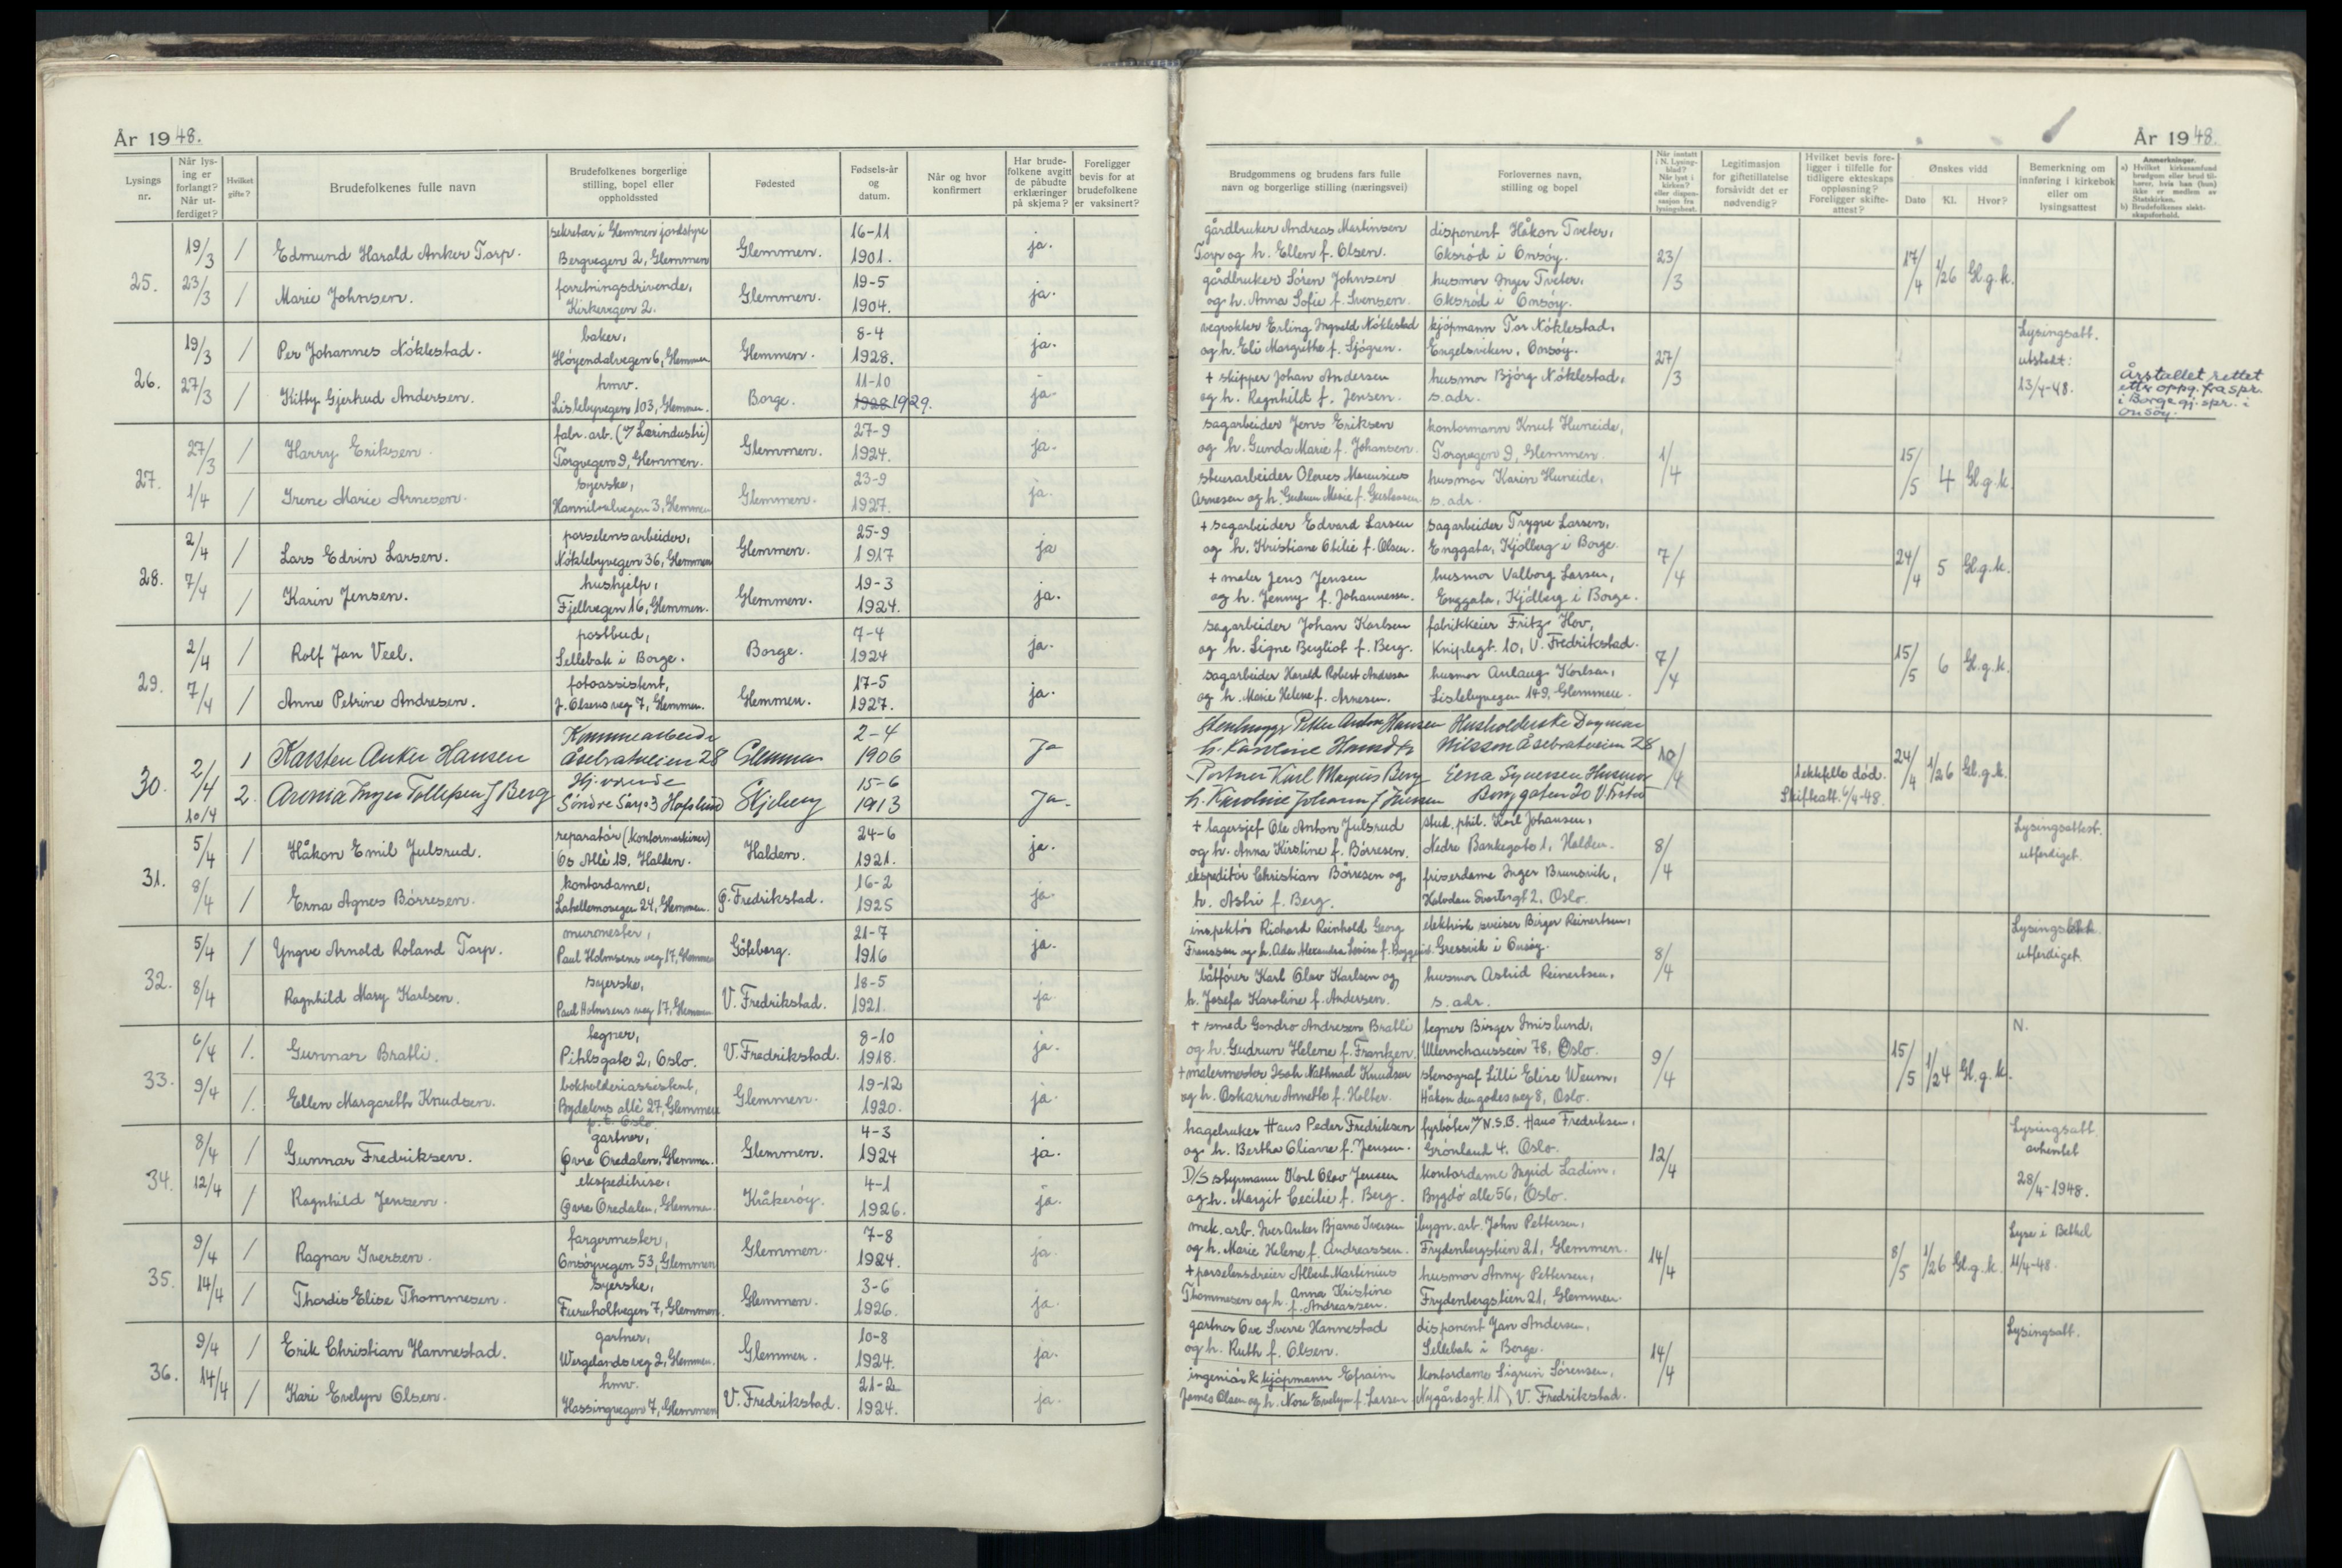 År 1948.
Lysings nr.
Når lysing er forlangt? Når utferdiget?
Hvilket gifte?
Brudefolkenes fulle navn
Brudefolkenes borgerlige stilling, bopel eller oppholdssted
Fødested
Fødsels-år og datum.
Når og hvor konfirmert
Har brudefolkene avgitt de påbudte erklæringer på skjema?
Foreligger bevis for at brudefolkene er vaksinert?
25.
19/3 1 Edmund Harald Anker Torp. sekretær i Glemmen jordstyre Bergvegen 2, Glemmen Glemmen. 16-11 1901. ja.
23/3 1 Marie Johnsen. forretningsdrivende, Kirkevegen 2. Glemmen. 19-5 1904. ja.
26.
19/3 1 Per Johannes Nöklestad. baker, Höyendalvegen 6, Glemmen Glemmen. 8-4 1928. ja.
27/3 1 Kitty Gjertrud Andersen. hmv. Lislebyvegen 103, Glemmen. Borge. 11-10 1928 1929. ja.
27.
27/3 1 Harry Eriksen. fabr. arb. (v/ Lærindustri) Torgvegen 9, Glemmen. Glemmen. 27-9 1924. ja.
1/4 1 Irene Marie Arnesen. syerske, 3, Glemmen Glemmen. 23-9 1927. ja.
28.
2/4 1 Lars Edvin Larsen. porselensarbeider, Nöklebyvegen 36, Glemmen Glemmen. 25-9 1917 ja
7/4 1 Karin Jensen. hushjelp, Fjellvegen 16, Glemmen. Glemmen. 19-3 1924. ja.
29.
2/4 1 Rolf Jan Veel. postbud, Sellebak i Borge. Borge. 7-4 1924 ja.
7/4 1 Anne Petrine Andresen. fotoassistent, J. Olsens veg 7, Glemmen. Glemmen. 17-5 1927. ja.
30.
2/4 1 Karsten Anker Hansen 28 Glemmen 2-4 1906 Ja
10/4 2. Inger Tollefsen f Berg Söndre 3 Hafslund Skjeberg 15-6 1913 Ja.
31.
5/4 1 Håkon Emil Julsrud. reparatör (kontormaskiner) Os Allè 19, Halden. Halden. 24-6 1921. ja.
8/4 1 Erna Agnes Börresen. kontordame, Labellemosegen 24, Glemmen. G. Fredrikstad. 16-2 1925 ja.
32.
5/4 1 Yngve Arnold Roland Torp. murmester, Paul Holmsens veg 17, Glemmen Göteborg. 21-7 1916 ja.
8/4 Ragnhild Mary Karlsen. syerske, Paul Holmsens veg 17, Glemmen V. Fredrikstad. 18-5 1921. ja
33.
6/4 1. Gunnar Bratli. tegner, Pihlsgate 2, Oslo. V. Fredrikstad. 8-10 1918. ja.
9/4 1. Ellen Margareth Knudsen. bokholderiassistent, Bydalens allè 27, Glemmen p.t. Oslo. Glemmen. 19-12 1920. ja.
34.
8/4 1 Gunnar Fredriksen. gartner, Øvre Oredalen, Glemmen. Glemmen. 4-3 1924 ja.
12/4 1 Ragnhild Jensen. ekspeditrise, Øvre Oredalen, Glemmen. Kråkeröy. 4-1 1926. ja.
35.
9/4 1 Ragnar Iversen. fargermester, Onsöyvegen 53, Glemmen Glemmen. 7-8 1924. ja.
14/4 1 Thordis Elise Thommesen. syerske, Furuholtvegen 7, Glemmen. Glemmen. 3-6 1926. ja.
36.
9/4 1 Erik Christian Hannestad. gartner, Wergelands veg 2, Glemmen. Glemmen. 10-8 1924. ja.
14/4 1 Kari Evelyn Olsen. hmv. Hassingvegen 7, Glemmen V. Fredrikstad. 21-2 1924. ja.
År 1948.
Brudgommens og brudens fars fulle navn og borgerlige stilling (næringsvei)
Forlovernes navn, stilling og bopel
Når inntatt i N. Lysingblad? Når lyst i kirken? eller dispensasjon fra lysingsbest.
Legitimasjon for giftetillatelse forsåvidt det er nødvendig?
Hvilket bevis foreligger i tilfelle for tidligere ekteskaps oppløsning? Foreligger skifteattest?
Ønskes vidd
Dato Kl. Hvor?
Bemerkning om innføring i kirkebok eller om lysingsattest
Anmerkninger.
a) Hvilket kirkesamfund brudgom eller brud tilhører, hvis han (hun) ikke er medlem av Statskirken.
b) Brudefolkenes slektskapsforhold.
gårdbruker Andreas Martinsen disponent Håkon Tveter,
Torp og h. Ellen f. Olsen. Oksröd i Onsöy. 23/3 17/4 1/2 6 Gl.g.k.
gårdbruker Sören Johnsen husmor Inger Tveter,
og h. Anna Sofie f. Svensen. Oksröd i Onsöy.
vegvokter Erling Ingvald Nöklestad kjöpmann Tor Nöklestad, Lysingsatt.
og h. Eli Margrethe f. Sjögren. Engelsviken, Onsöy. 27/3 utstedt:
+ skipper Johan Andersen husmor Björg Nöklestad, 13/4-48.
og h. Ragnhild f. Jensen. s. adr.
Årstallet rettet
etter oppg. fra spr.
i Borge gj. spr. i
Onsöy.
sagarbeider Jens Eriksen kontormann Knut Huneide,
og h. Gunda Marie f. Johansen. Torgvegen 9, Glemmen. 1/4 15/5 4 Gl.g.k.
stuerarbeider Olaves husmor Karin Huneide,
Arnesen og h. Gudrun Marie f. Gustavsen s. adr.
+ sagarbeider Edvard Larsen sagarbeider Trygve Larsen,
og h. Kristiane Otilie f. Olsen. Enggata, Kjölberg i Borge. 7/4 24/4 5 Gl.g.k.
+ maler Jens Jensen husmor Valborg Larsen,
og h. Jenny f. Johannessen. Enggata, Kjölberg i Borge.
sagarbeider Johan Karlsen fabrikkeier Fritz Hov,
og h. Signe Bergliot f. Berg. Kniplegt. 10, V. Fredrikstad. 7/4 15/5 6 Gl.g.k.
sagarbeider Harald Robert Andresen husmor Aslaug Karlsen,
og h. Marie Helene f. Arnesen. Lislebyvegen 149, Glemmen.
Stenhugger Petter Anton Hansen Husholderske Dagmar
h. Karoline Nilsson 28 10/4
Portner Karl Magnus Berg Erna Syversen Husmor
h. Karoline Johanne f Borggaten 20 V. Fr.stad
1 ektefelle död. 24/4 1/2 6 Gl.g.k.
Skifteatt. 6/4-48.
+ lagersjef Ole Anton Julsrud stud. phil. Karl Johansen, Lysingsattest.
og h. Anna Kirstine f. Börresen. Nedre Bankegate 1, Halden. 8/4 utferdiget.
ekspeditör Christian Börresen og friserdame Inger Brunsvik,
h. Astri f. Berg. Halvdan Svartesgt 2, Oslo.
inspektör Richard Reinhold Georg elektrisk sveiser Birger Reinertsen, Lysingsatt.
Fransson og h. Ada Alexandra Lovise f. Gressvik i Onsöy. 8/4 utferdiget
båtförer Karl Olav Karlsen og husmor Astrid Reinertsen,
h. Josefa Karoline f. Andersen. s. adr.
+ smed Gondro Andresen Bratli tegner Birger Imislund, N.
og h. Gudrun Helene f. Frantzen. Ullernchausseèn 78, Oslo. 9/4 15/5 1/2 4 Gl.g.k.
+ malermester Isak Nathnael Knudsen stenograf Lilli Elise Weum,
og h. Oskarine Annette f. Holter. Håkon den godes veg 8, Oslo.
hagebruker Hans Peder Fredriksen fyrböter v/ N.S.B. Hans Fredriksen, Lysingsatt.
og h. Bertha Oliane f. Jensen. Grönland 4, Oslo. 12/4 avhentet
D/S styrmann Karl Olav Jensen kontordame Ingrid Ladim, 28/4-1948.
og h. Margit Cecilie f. Berg. Bygdö allè 56, Oslo.
mek. arb. Iver Anker Bjarne Iversen bygn. arb. John Pettersen, Lyse i Bethel
og h. Marie Helene f. Andreassen. Frydenbergstien 21, Glemmen. 14/4 8/5 1/2 6 Gl.g.k. 11/4-48.
+ porselensdreier Albert Martinius husmor Anny Pettersen,
Thommesen og h. Anna Kristine f. Andreassen. Frydenbergstien 21, Glemmen.
gartner Ove Sverre Hannestad disponent Jan Andersen, Lysingsatt.
og h. Ruth f. Olsen. Sellebak i Borge. 14/4
ingeniör & kjöpmann Efraim kontordame Sigrun Sörensen,
James Olsen og h. Nora Evelyn f. Larsen Nygårdsgt. 11, V. Fredrikstad.